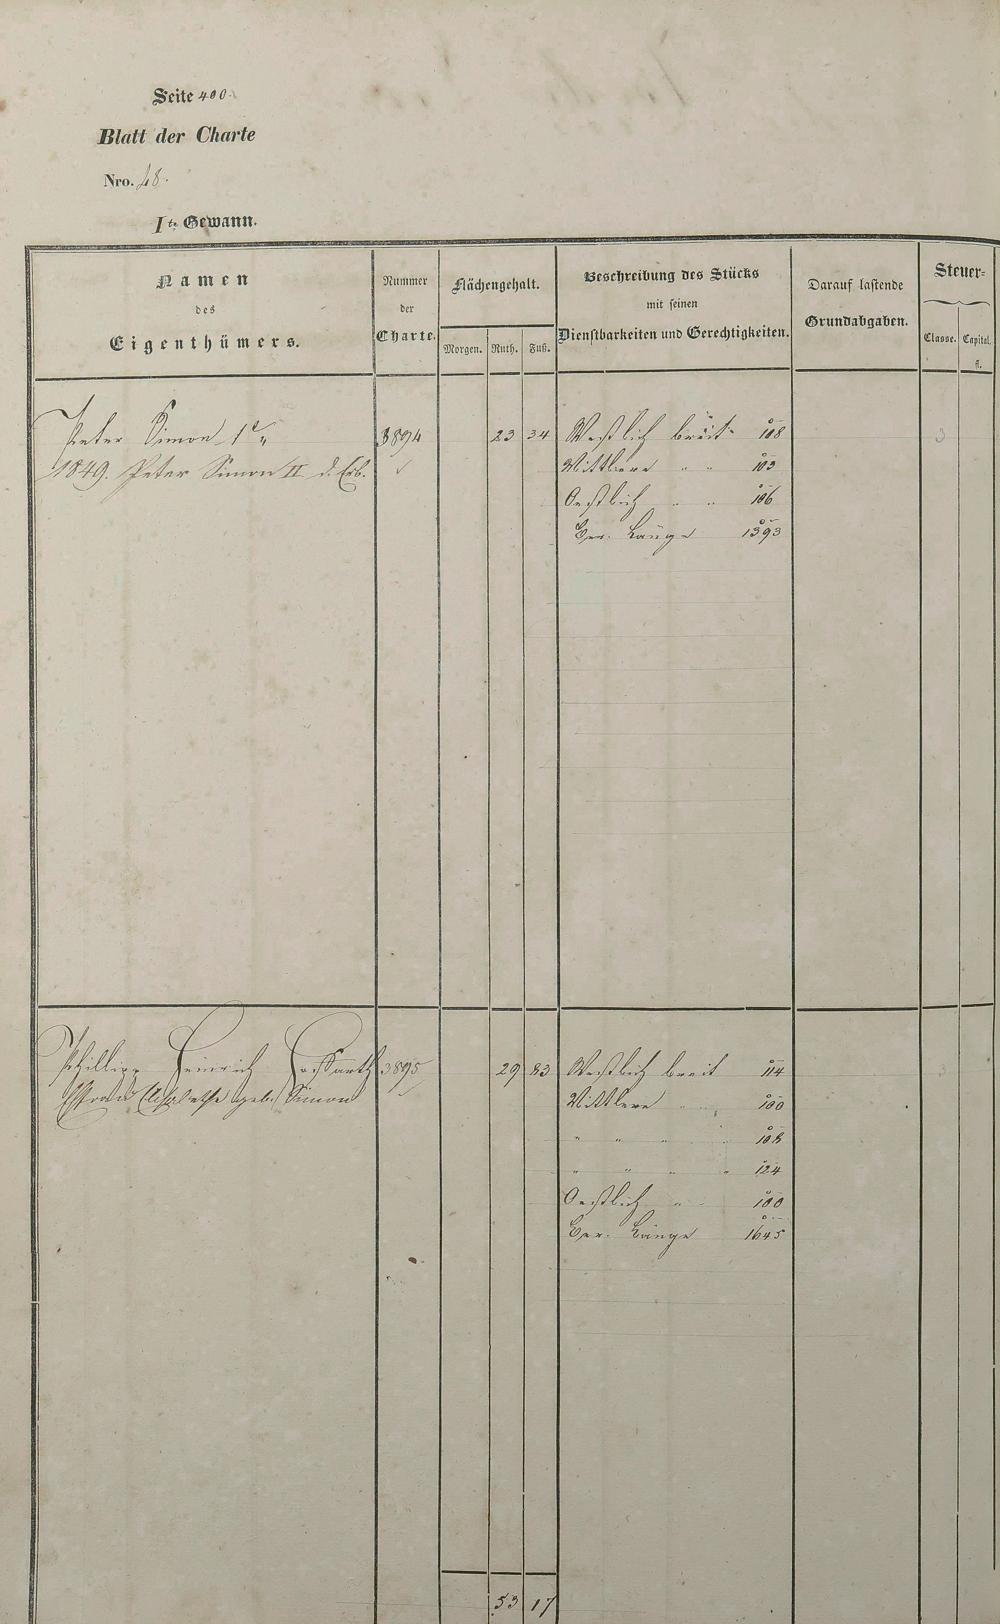 Seite 400.
Blatt der Charte
Nro. 48.
I te Gewann.
Namen des Eigenthümers.
Nummer der Charte.
Flächengehalt.
Morgen. Ruth. Fuß.
Beschreibung des Stücks mit seinen Dienstbarkeiten und Gerechtigkeiten.
Darauf lastende Grundabgaben.
Steuer-
Classe. Capital.
fl.
Peter Simon 1r 3894 23 34 Westlich breit 108 3
1849. Peter Simon II d. Erb. Mittlere " " 103
Oestlich " " 106
Ber. Länge 1393
Phillipp Heinrich 3895 29 83 Westlich breit 114 3
Elisabetha geb. Simon Mittlere " " 100
" " " " 108
" " " " 124
Oestlich " " 100
Ber. Länge 1645
53 17